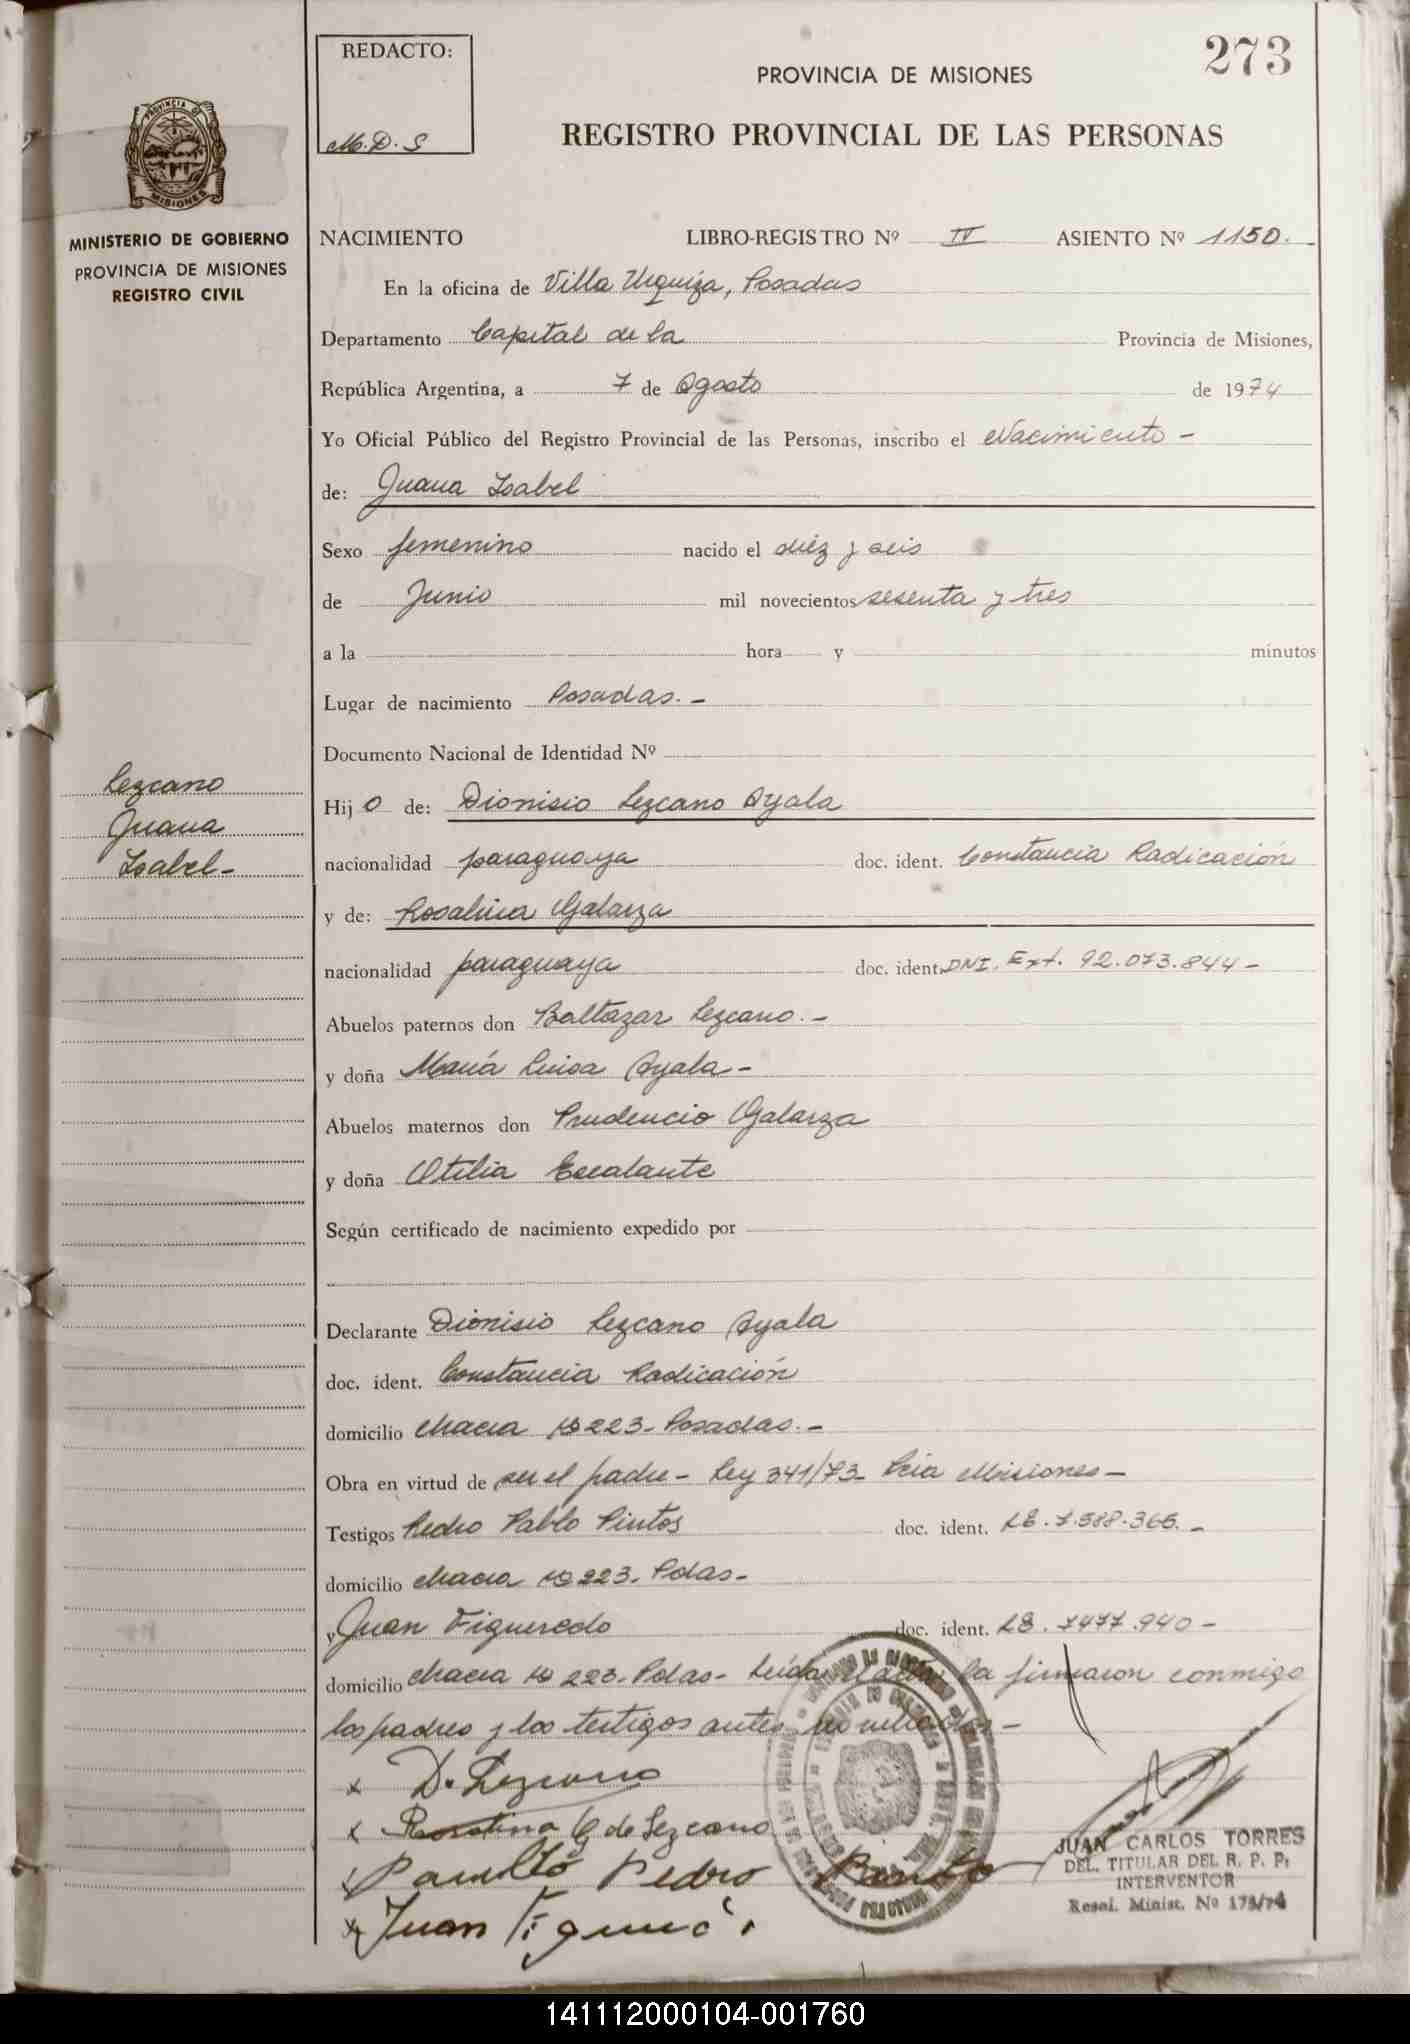 REDACTO:
M.D.S
273
PROVINCIA DE MISIONES
REGISTRO PROVINCIAL DE LAS PERSONAS
PROVINCIA DE
MISIONES
MINISTERIO DE GOBIERNO
PROVINCIA DE MISIONES
REGISTRO CIVIL
NACIMIENTO LIBRO-REGISTRO Nº IV ASIENTO Nº 1150.-
En la oficina de Villa Urquiza, Posadas
Departamento Capital de la Provincia de Misiones,
República Argentina, a 7 de Agosto de 1974
Yo Oficial Público del Registro Provincial de las Personas, inscribo el Nacimiento -
de: Juana Isabel
Sexo femenino nacido el diéz y seis
de Junio mil novecientos sesenta y tres
a la hora y minutos
Lugar de nacimiento Posadas.-
Documento Nacional de Identidad Nº
Lezcano
Juana
Isabel-
Hijo de: Dionisio Lezcano Ayala
nacionalidad paraguaya doc. ident. Constancia Radicación
y de: Rosalina Galarza
nacionalidad paraguaya doc. ident. DNI. Ext. 92.073.844-
Abuelos paternos don Baltazar Lezcano.-
y doña María Luisa Ayala-
Abuelos maternos don Prudencio Galarza
y doña Otilia Escalante
Según certificado de nacimiento expedido por
Declarante Dionisio Lezcano Ayala
doc. ident. Constancia Radicación
domicilio Chacra Nº 223- Posadas.-
Obra en virtud de ser el padre- Ley 341/73- Pcia Misiones-
Testigos Pedro Pablo Pintos doc. ident. LE. 7.588.365.-
domicilio Chacra Nº 223. Pdas-
y Juan Figueredo doc. ident. LE. 7477.940-
domicilio Chacra Nº 223- Pdas- Leída el acta la firmaron conmigo
los padres y los testigos antes
x D. Lezcano
x Rosalina G de Lezcano
Pedro
x Juan
JUAN CARLOS TORRES
DEL. TITULAR DEL R. P. P.
INTERVENTOR
Resol. Minist. No 175/74
141112000104-001760